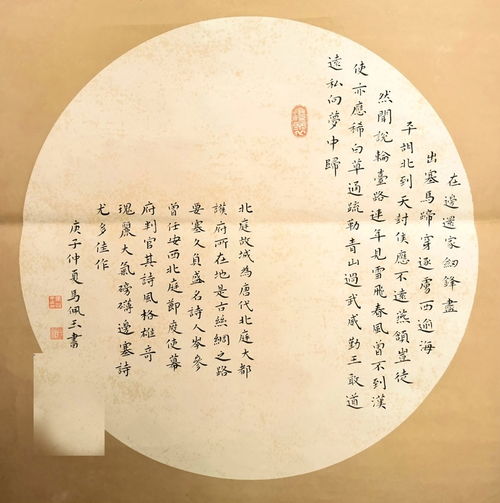 在邊還家劍鋒盡
出塞馬蹄穿逐虜西逾海
平胡北到天封侯應不遠燕頷豈徒
然聞說輪臺路連年見雪飛春風曾不到漢
使亦應稀白草通疏勒青山過武威勤王敢道
遠私向夢中歸
北庭故城為唐代北庭大都
護府所在地是古絲綢之路
要塞久負盛名詩人岑參
曾任安西北庭節度使幕
府判官其詩風格雄奇
瑰麗大氣磅礴邊塞詩
尤多佳作
庚子仲夏馬佩玉書